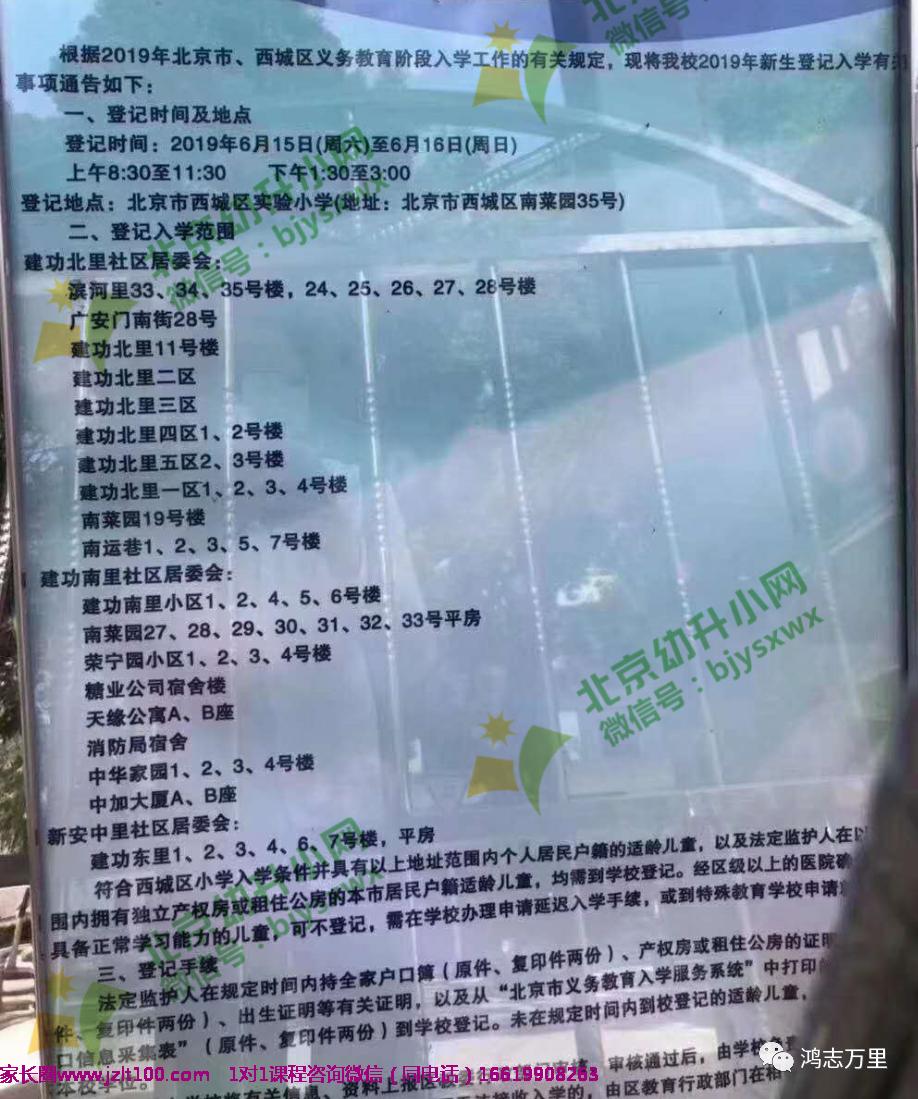 根据2019年北京市、西城区义务教育阶段入学工作的有关规定，现将我校2019年新生登记入学有关
事项通告如下：
一、登记时间及地点
登记时间：2019年6月15日(周六)至6月16日(周日)
上午8:30至11:30 下午1:30至3:00
登记地点：北京市西城区实验小学(地址：北京市西城区南菜园35号)
二、登记入学范围
建功北里社区居委会：
滨河里33、34、35号楼，24、25、26、27、28号楼
广安门南街28号
建功北里11号楼
建功北里二区
建功北里三区
建功北里四区1、2号楼
建功北里五区2、3号楼
建功北里一区1、2、3、4号楼
南菜园19号楼
南运巷1、2、3、5、7号楼
建功南里社区居委会：
建功南里小区1、2、4、5、6号楼
南菜园27、28、29、30、31、32、33号平房
荣宁园小区1、2、3、4号楼
糖业公司宿舍楼
天缘公寓A、B座
消防局宿舍
中华家园1、2、3、4号楼
中加大厦A、B座
新安中里社区居委会：
建功东里1、2、3、4、6、7号楼，平房
符合西城区小学入学条件并具有以上地址范围内个人居民户籍的适龄儿童，以及法定监护人在以
围内拥有独立产权房或租住公房的本市居民户籍适龄儿童，均需到学校登记。经区级以上的医院确
具备正常学习能力的儿童，可不登记，需在学校办理申请延迟入学手续，或到特殊教育学校申请
三、登记手续
法定监护人在规定时间内持全家户口簿（原件、复印件两份）、产权房或租住公房的证明
件、复印件两份）、出生证明等有关证明，以及从“北京市义务教育入学服务系统”中打印
口信息采集表”（原件、复印件两份）到学校登记。未在规定时间内到校登记的适龄儿童，
本校学位。
审核通过后，由学校
由区教育行政部门在
北京幼升小网
微信号：bjysxwx
北京幼升小网
微信号：bjysxwx
北京幼升小网
微信号：bjysxwx
微信号
家长圈www.jzlt100.com 1对1课程咨询微信（同电话）16619908263
鸿志万里